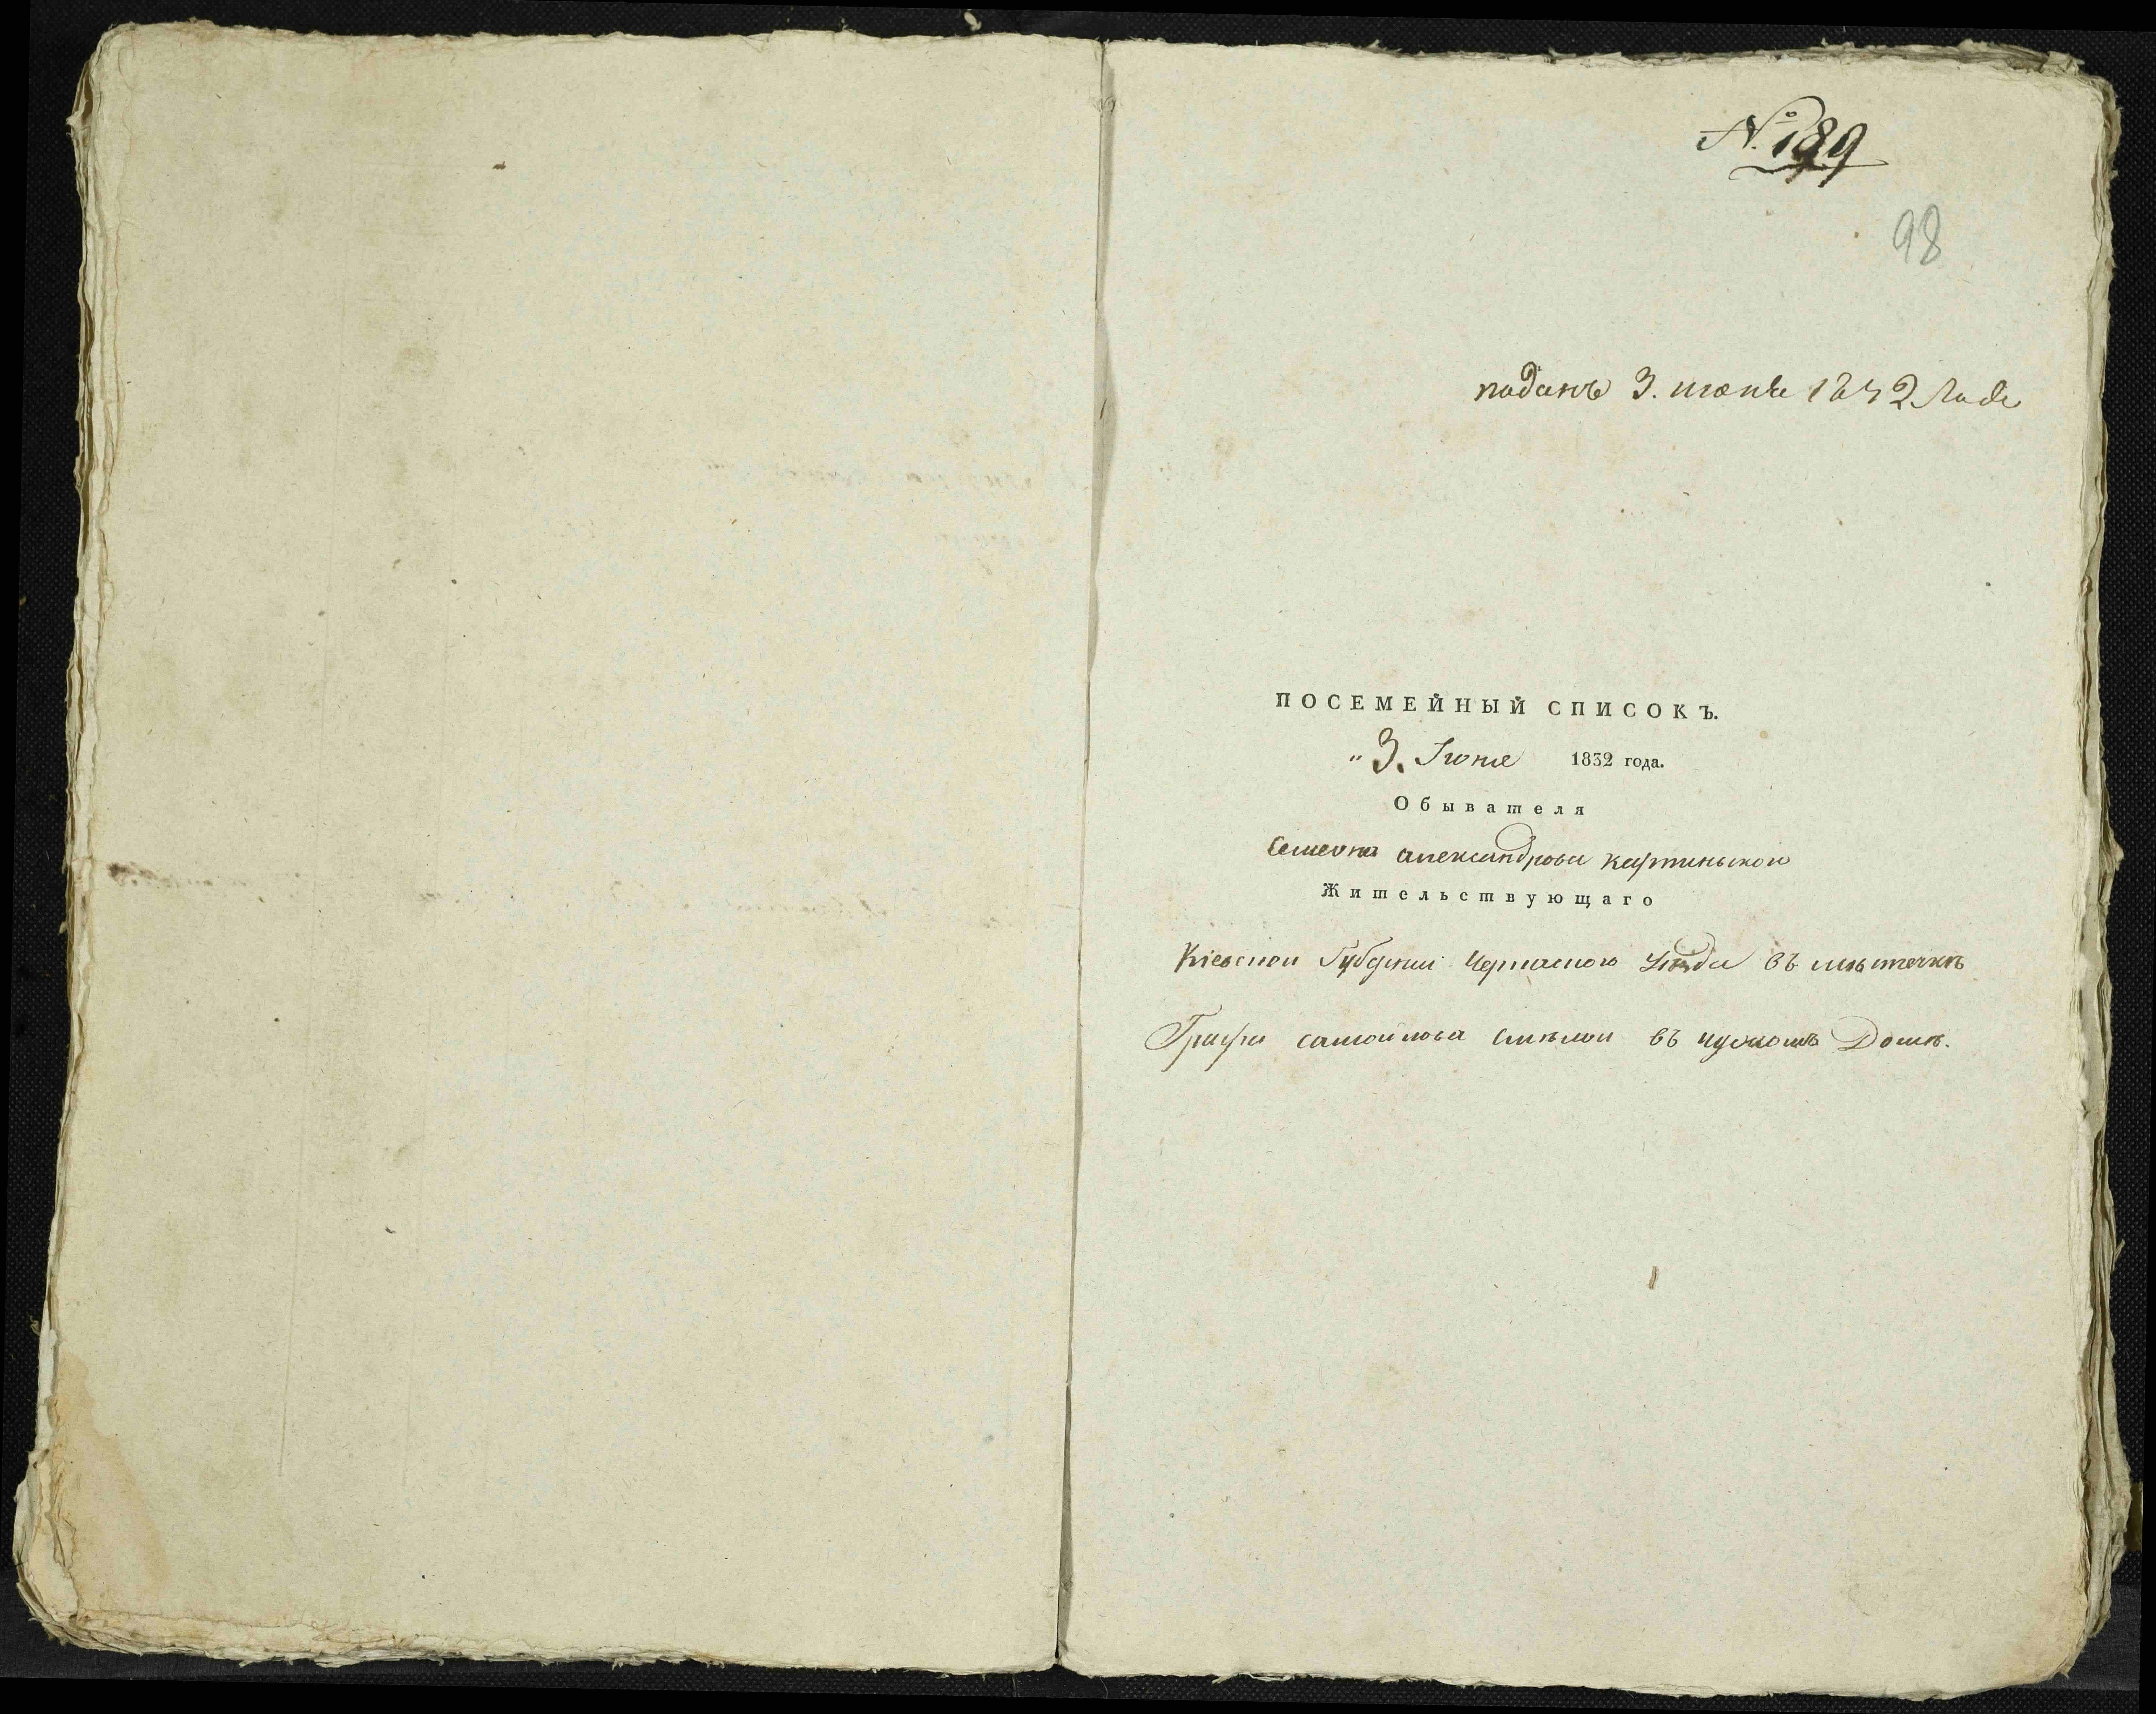 № 189
98
поданъ 3. июня 1832 года
ПОСЕМЕЙНЫЙ СПИСОКЪ.
„ 3. Июня 1832 года.
Обывателя
Семиона александрова
Жительствующаго
Кіевской Губернии Черкаского уезда въ местечкѣ
Графа самойлова смѣлои въ чужомъ Домѣ.